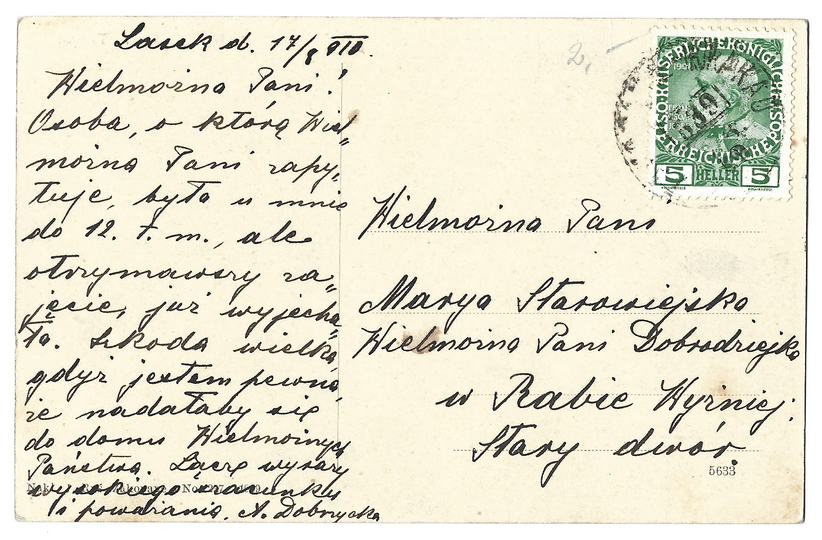 Lasek d. 17/8 910.
Wielmożna Pani!
Osoba, o którą Wiel„
można Pani zapy„
tuje, była u mnie
do 12. t. m., ale
otrzymawszy za„
jęcie, już wyjecha„
ła. Szkoda wielka,
gdyż jestem pewna,
że nadałaby się
do domu Wielmożnych
Państwa. Łączę wyrazy
wysokiego szacunku
i poważania, A. Dobrzycka
2,
KAISERLICHE KÖNIGLICHE
ÖSTERREICHISCHE POST
5 HELLER 5
KRAKAU
Wielmożna Pani
Marya Starowiejska
Wielmożna Pani Dobrodziejka
w Rabie Wyżniej.
Stary dwór.
5633